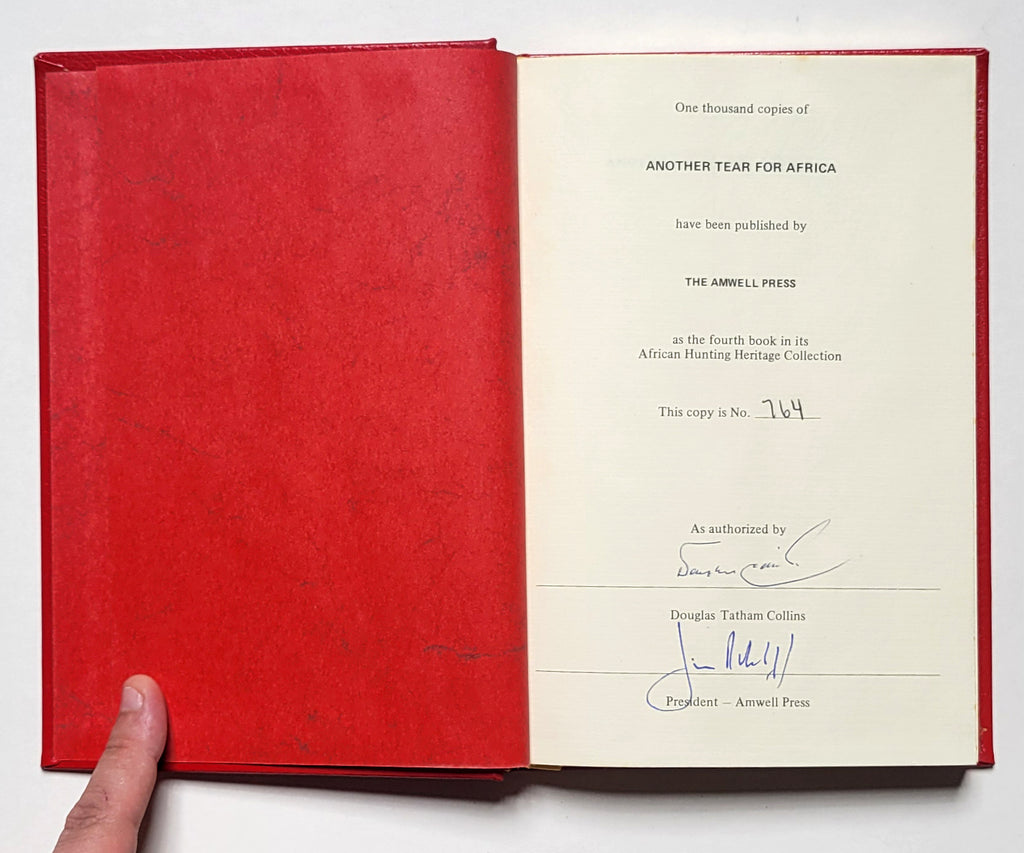 One thousand copies of
ANOTHER TEAR FOR AFRICA
have been published by
THE AMWELL PRESS
as the fourth book in its
African Hunting Heritage Collection
This copy is No. 764
As authorized by
Douglas Tatham Collins
Jim
President — Amwell Press